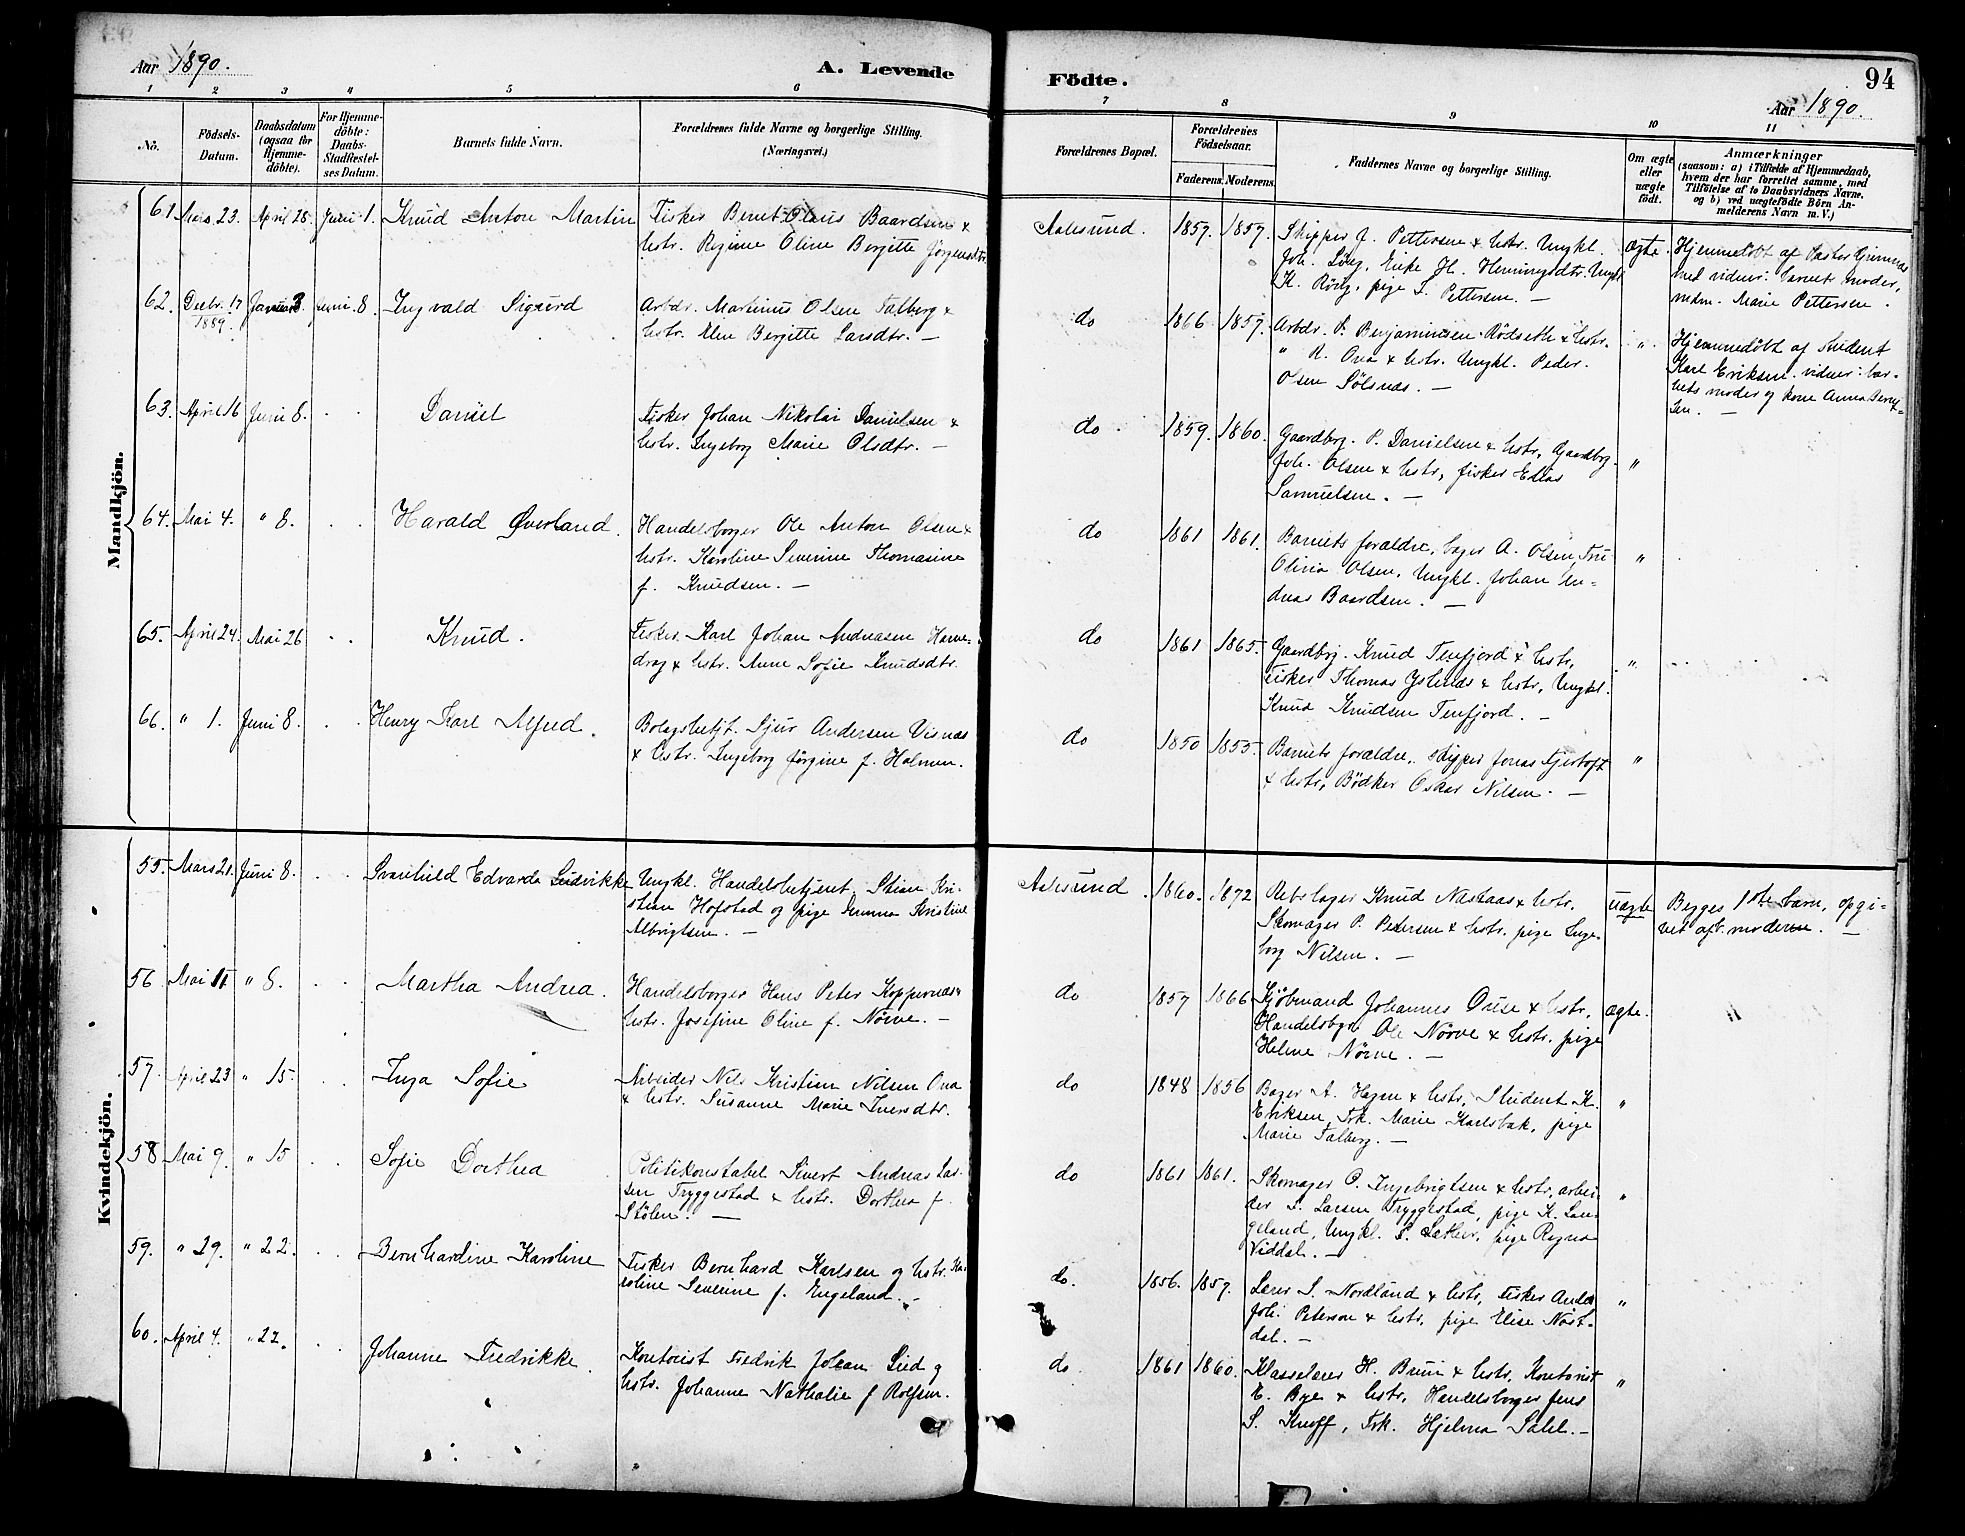 Aar 1890.
A. Levende
Födte.
94
Aar 1890.
1 2 3 4 5 6 7 8 9 10 11
No.
Födsels-
Datum.
Daabsdatum
(ogsaa for
Hjemme-
döbte).
For Hjemme-
döbte:
Daabs-
Stadfæstel-
ses Datum.
Barnets fulde Navn.
Forældrenes fulde Navne og borgerlige Stilling.
(Næringsvei.)
Forældrenes Bopæl.
Forældrenes
Födselsaar.
Faderens. Moderens.
Faddernes Navne og borgerlige Stilling.
Om ægte
eller
uægte
født.
Anmærkninger
(saasom: a) i Tilfælde af Hjemmedaab,
hvem der har forrettet samme, med
Tilföielse af to Daabsvidners Navne,
og b) ved uægtefödte Börn An-
melderens Navn m. V.)
Mandkjön.
61. Mars 23. April 28. Juni 1. Knud Anton Martin
Fisker Bernt Olaus Baardsen &
hstr. Regine Oline Bergitte Jörgensdtr.
Aalesund. 1857. 1857.
Skipper J. Pettersen & hstr. Ungkl.
Joh. Ling, Enke H. Henningsdtr. Ungkl.
K. Röng, pige S. Pettersen. —
Ægte.
Hjemmedöbt af Pastor Grimnæs
med vidner: barnets moder,
madm. Marie Pettersen.
62. Decbr. 17 1889. Januar 3. Juni 8. Ingvald Sigurd
Arbdr. Martinus Olsen Talberg &
hstr. Elen Bergitte Larsdtr. —
do 1866 1857.
Arbdr. P. Benjaminsen Rödseth & hstr.
" R. Ona & hstr. Ungkl. Peder
Olsen Sölsnæs. —
"
Hjemmedöbt af student
Karl Eriksen. vidner: bar-
nets moder og kone Anna Bernt-
sen. —
63. April 16 Juni 8. Daniel
Fisker Johan Nikolai Danielsen &
hstr. Ingeborg Marie Olsdtr. —
do 1859. 1860.
Gaardbrg. P. Danielsen & hstr, Gaardbrg.
Joh. Olsen & hstr, fisker Elias
Samuelsen. —
"
64. Mai 4. " 8. Harald Øverland.
Handelsborger Ole Anton Olsen &
hstr. Karoline Severine Thomasine
f. Knudsen. —
do 1861 1861.
Barnets forældre, bager A. Olsen, Fru
Olivia Olsen, Ungkl. Johan An-
dreas Baardsen. —
"
65. April 24. Mai 26 Knud.
Fisker Karl Johan Andreasen Hame-
drag & hstr. Anne Sofie Knudsdtr.
do 1861 1865.
Gaardbrg. Knud Tenfjord & hstr,
Fisker Thomas Ystenæs & hstr, Ungkl.
Knud Knudsen Tenfjord. —
"
66. " 1. Juni 8. Henry Karl Alfred.
Bolagsbetjt. Sjur Andersen Visnæs
& hstr. Ingeborg Jörgine f. Holmen.
do 1850 1855.
Barnets forældre, Skipper Jonas Fjærtoft
& hstr, Bödker Oskar Nilsen. —
"
Kvindekjön.
55. Mars 21. Juni 8. Svanhild Edvarda Ludvikke
Ungkl. Handelsbetjent Stian Kri-
stian Hofstad og pige Emma Kristine
Albrigtsen. —
Aalesund. 1860. 1872
Rebslager Knud Næstaas & hstr.
Skomager P. Pedersen & hstr. pige Inge-
borg Nilsen. —
uægte
Begges 1ste barn, opgi-
vet af moderen. —
56 Mai 11 " 8. Martha Andrea.
Handelsborger Hans Peter Koppernæs &
hstr. Josefine Oline f. Nörve. —
do 1857 1866
Kjöbmand Johannes Duse & hstr,
Handelsbgr. Ole Nörve & hstr. pige
Helene Nörve. —
ægte.
57. April 23 " 15. Inga Sofie
Arbeider Nils Kristian Nilsen Ona
& hstr. Susanne Marie Iversdtr.
do 1848 1856
Bager A. Hagen & hstr, Student K.
Eriksen, Frk. Marie Karlsbak, pige
Marie Talberg. —
"
58 Mai 9. " 15 Sofie Dorthea
Politikonstabel Sivert Andreas Lar-
sen Tryggestad & hstr. Dorthea f.
Stölen. —
do 1861 1861.
Skomager O. Ingebrigtsen & hstr, arbei-
der S. Larsen Tryggestad, pige K. Lan-
geland, Ungkl. P. Sæther, pige Regna
Viddal. —
"
59. " 29. " 22. Bernhardine Karoline
Fisker Bernhard Karlsen og hstr. Ka-
roline Severine f. Engeland. —
do. 1856. 1857.
Lærer S. Nordlund & hstr, Fisker Anders
Joh. Peterson & hstr, pige Elise Nöst-
dal. —
"
60. April 4. " 22. Johanne Fredrikke.
Kontorist Fredrik Johan Lied og
hstr. Johanne Nathalie f. Rolfsen.
do 1861 1860.
Klasselærer H. Bruun & hstr, Kontorist
E. Bye & hstr, Handelsborger Jens
S. Knoff, Frk. Hjelma Dahl. —
"